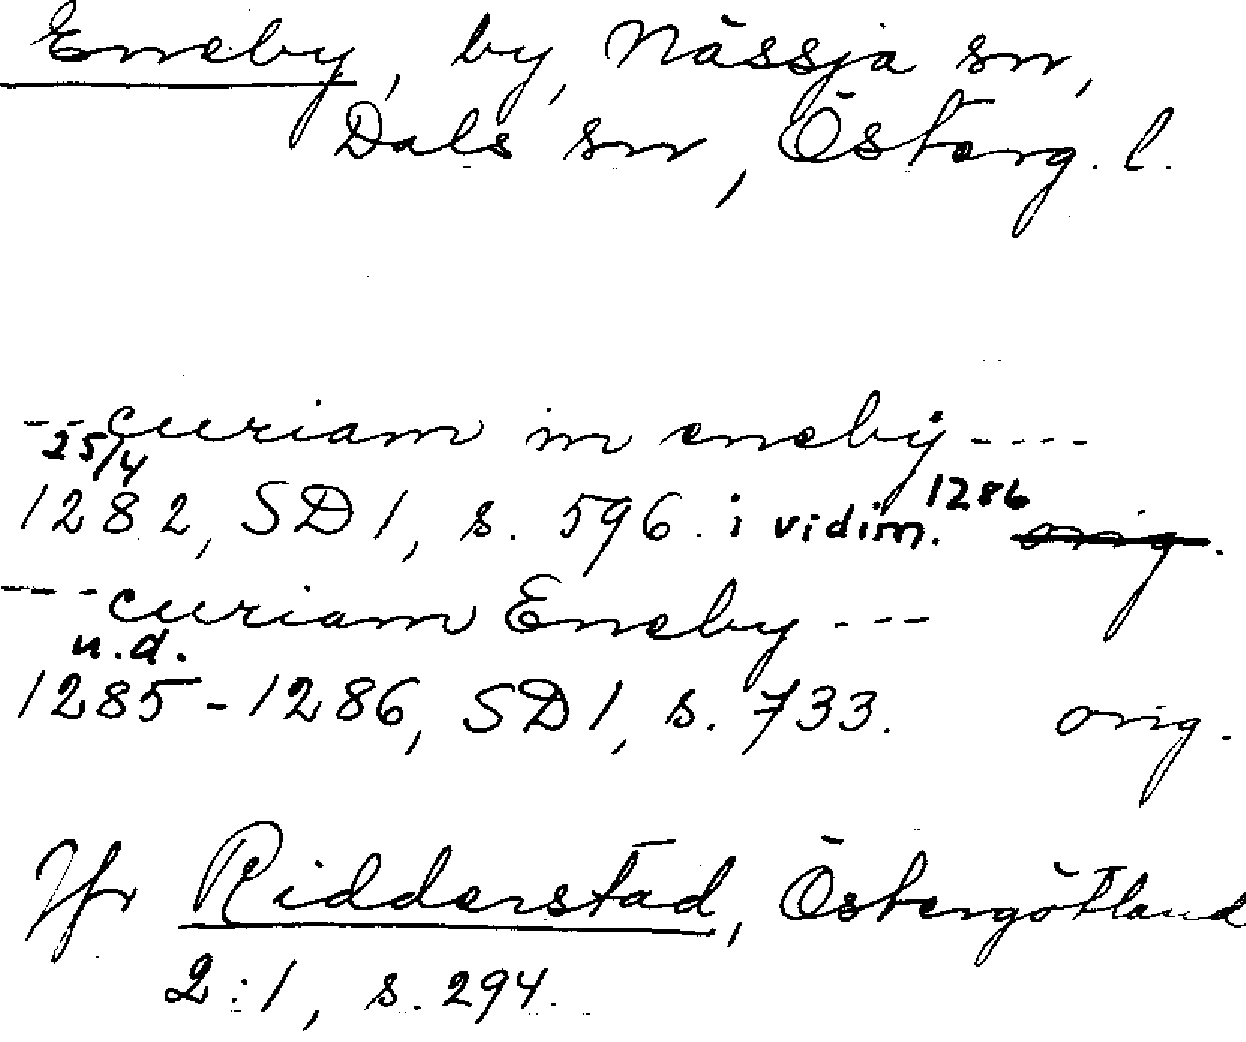 Eneby, by, Nässja sn,
Dals sn, Österg. l.
---curiam in enebÿ----
25/4
1282, SD 1, s. 596. i vidim. 1286 orig.
---curiam Eneby---
u.d.
1285-1286, SD 1, s. 733. orig.
Jfr Ridderstad, Östergötland
2:1, s. 294.